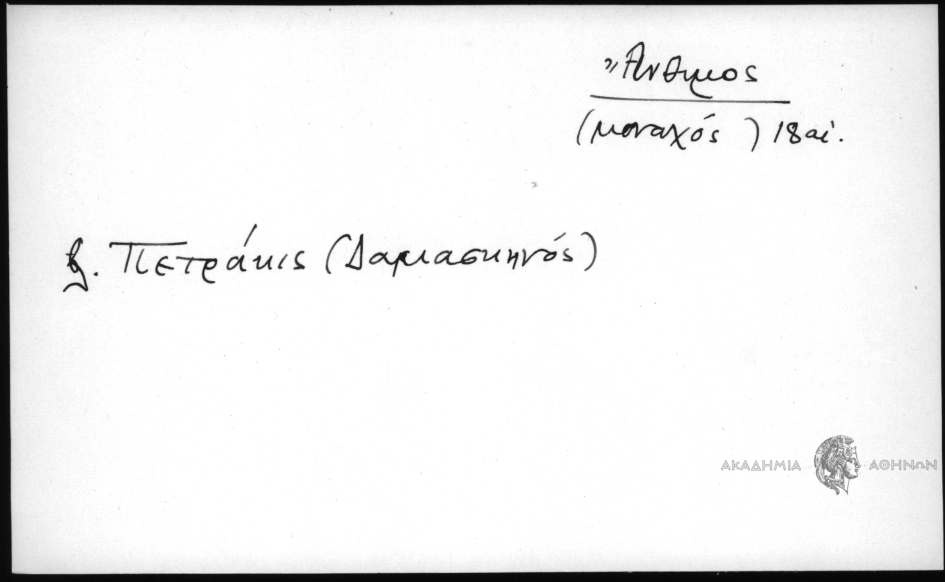 Ἄνθιμος
(μοναχός) 18 αἰ.
β. Πετράκις (Δαμασκηνός)
ΑΚΑΔΗΜΙΑ ΑΘΗΝΩΝ